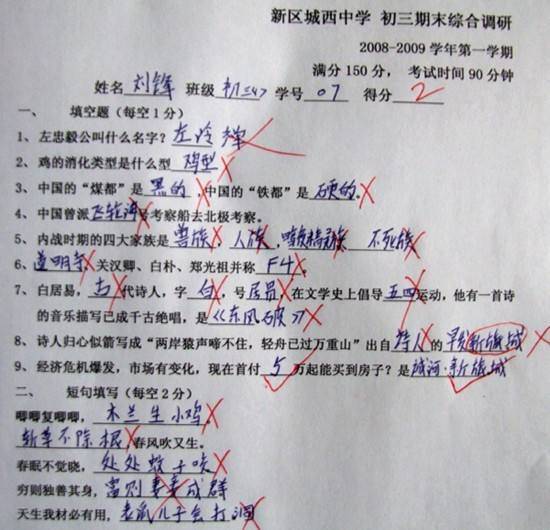 新区城西中学 初三期末综合调研
2008-2009 学年第一学期
满分 150 分, 考试时间 90 分钟
姓名 刘锋 班级 初三 学号 07 得分 2
一、 填空题(每空 1 分)
1、左忠毅公叫什么名字?左冷禅
2、鸡的消化类型是什么型 鸡型
3、中国的“煤都”是 黑的 ,中国的“铁都”是 硬的。
4、中国曾派飞轮海号考察船去北极考察。
5、内战时期的四大家族是 兽族、人族、暗夜精灵族 不死族
6、道明寺 关汉卿、白朴、郑光祖并称 F4 。
7、白居易,古代诗人,字 白,号居易,在文学史上倡导五四运动,他有一首诗
的音乐描写已成千古绝唱,是《东风破》
8、诗人归心似箭写成“两岸猿声啼不住,轻舟已过万重山”出自诗人的 新旅城
9、经济危机爆发,市场有变化,现在首付 5 万起能买到房子?是 城河·新旅城
二、 短句填写(每空 2 分)
唧唧复唧唧,木兰生小鸡
斩草不除根,春风吹又生。
春眠不觉晓,处处蚊子咬
穷则独善其身,富则妻妾成群
天生我材必有用,老鼠儿子会打洞